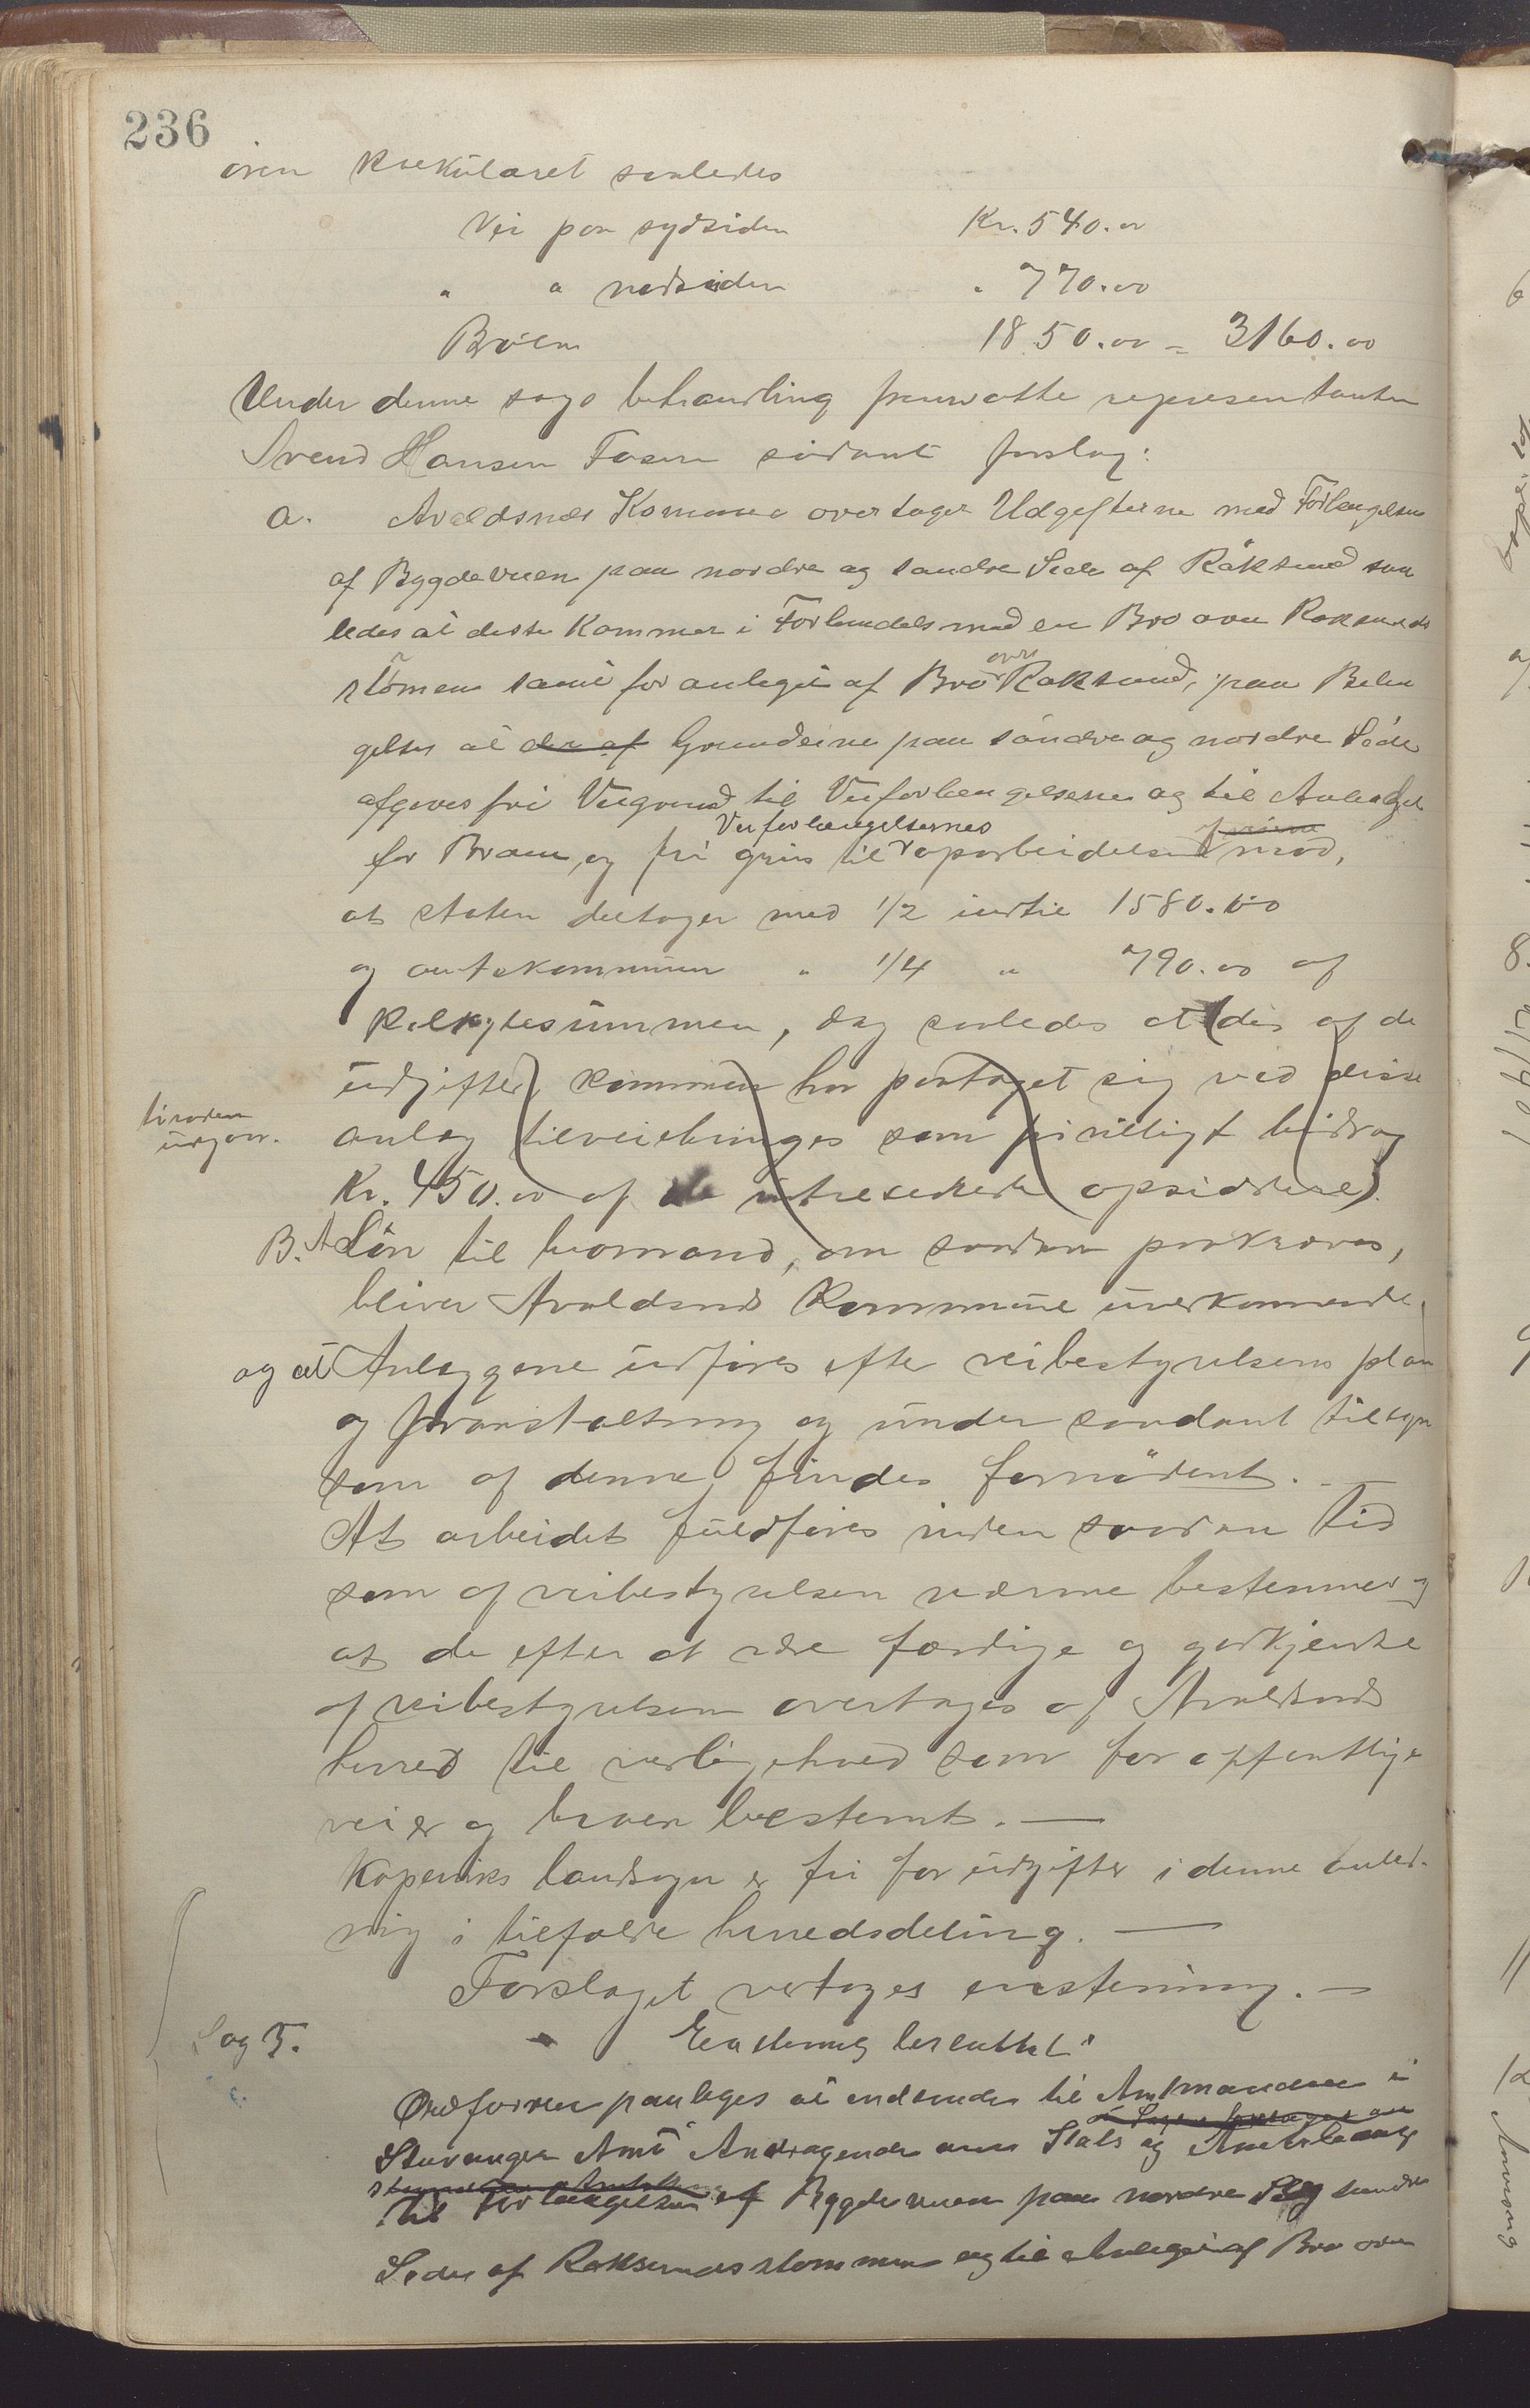 236
över kalkularet saaledes
Vei paa sydsiden Kr. 540.00
" " nordsiden " 770.00
Broen 1850.00 = 3160.00
Under denne sags behandling fremsatte representanten
Svend Hansen Fosen sådant forslag:
a. Avaldsnes Kommune overtager Udgifterne med Forlængelsen
af Bygdeveien paa nordre og søndre Side af Röksund saa
ledes at disse kommer i Forbindelse med en Bro over Roksunds
strömen samt for anlæget af Bro over Roksund, paa Betin
gelse at der af Grundeierne paa søndre og nordre Side
afgives fri Veigrund til Veiforlængelserne og til Anlægget
for Broen, og fri grus til Veiforlængelsernes oparbeidelse mod,
at staten deltager med 1/2 indtil 1580.00
og amtskommunen " 1/4 " 790.00 af
kalkylesummen, dog saaledes at der af de
udgifter kommunen har paataget sig ved disse
anlæg tilveiebringes som frivilligt bidrag
Kr. 450.00 af de intresserede opsiddere).
tiraden
udgaar.
B. At Lön til bromand, om saadan paakræves,
bliver Avaldsnes Kommune uvedkommende,
og at Anlæggene udføres efter veibestyrelsens plan
og foranstaltning og under saadant tilsyn
som af denne findes fornödent. —
At arbeidet fuldføres inden saadan Tid
som af veibestyrelsen nærme bestemmes og
at de efter at være færdige og godkjendte
af veibestyrelsen overtages af Avaldsnes
herred til vedligehold som for offentlige
veier og broer bestemt. —
Koperviks landsogn er fri for udgifter i denne anled-
ning i tilfælde herredsdeling. —
Forslaget vedtoges enstemmig. —
Sag 5. Enstemmig besluttet:
Ordføreren paalæges at indsende til Amtmanden i
Stavanger Amt Andragende om Stats og Amtsbidrag
til Forlængelsen af Bygdeveien paa nordre og søndre
Side af Roksundsstrømmen og til Anlæget af Bro over